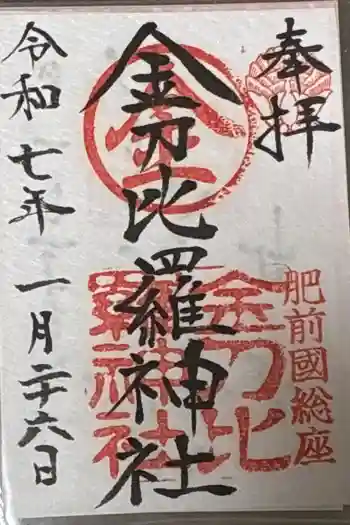 奉拝
肥前國総座
金刀比羅神社
金
金刀比
羅神社
令和七年 一月二十六日